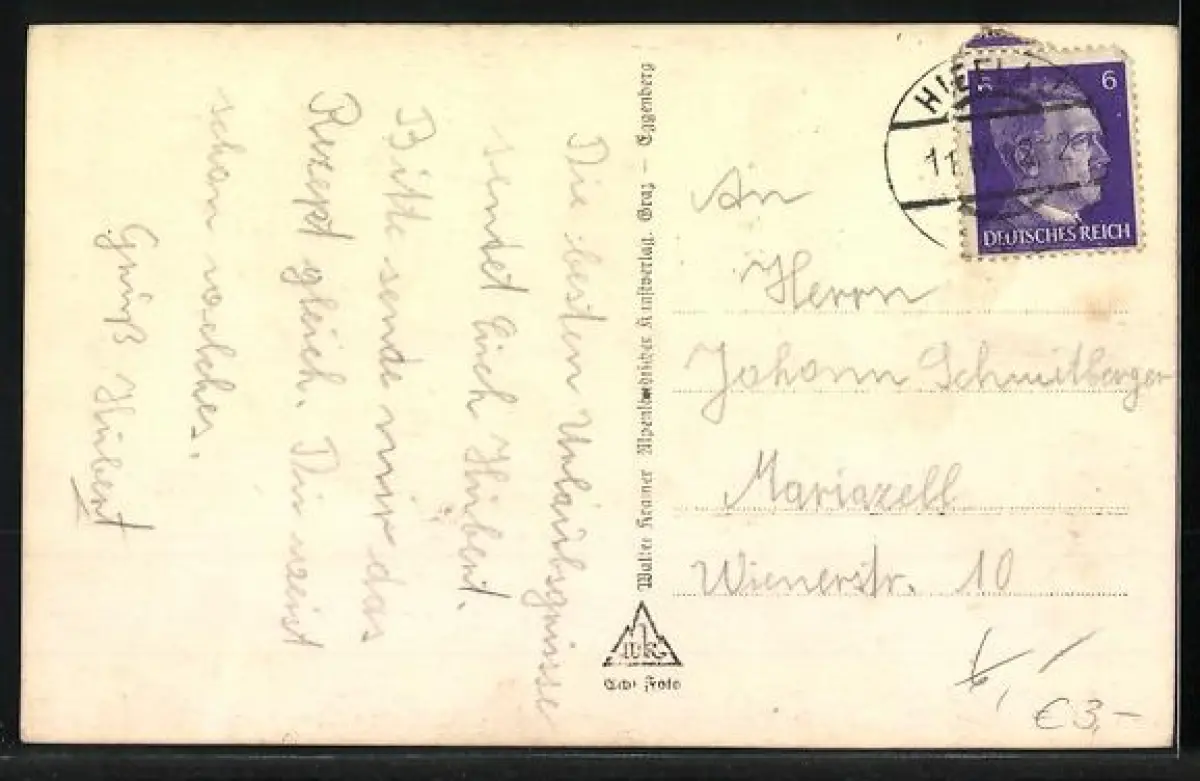 Die besten Urlaubsgrüsse
sendet Euch Hubert.
Bitte sende mir das
Rezept gleich. Du weist
schon welches.
Gruß Hubert
Walter Kramer Alpenländischer Kunstverlag, Graz – Eggenberg
WK
Echt Foto
HIEFLA
6
DEUTSCHES REICH
An
Herrn
Johann
Mariazell
Wienerstr. 10
€3,-